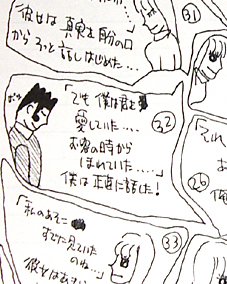 彼女は真実を自分の口
からそっと話しはじめた…
31
「でも僕は君を
愛していた…
お客の時から
ほれていた……」
僕は正直に話した!
32
「それ
26
俺
「私のあそこ
すでに見ていた
のね…」
33